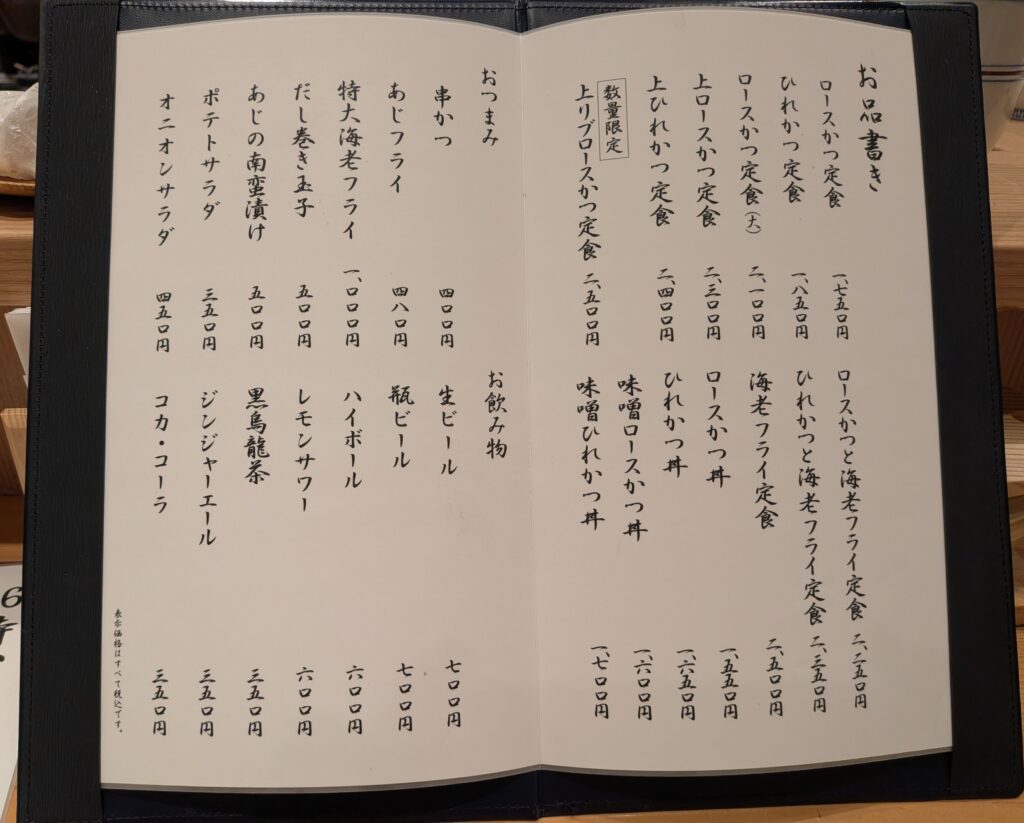 お品書き
ロースかつ定食 一、七五〇円
ひれかつ定食 一、八五〇円
ロースかつ定食(大) 二、一〇〇円
上ロースかつ定食 二、三〇〇円
上ひれかつ定食 二、四〇〇円
数量限定
上リブロースかつ定食 二、五〇〇円
ロースかつと海老フライ定食 二、二五〇円
ひれかつと海老フライ定食 二、三五〇円
海老フライ定食 二、五〇〇円
ロースかつ丼 一、五五〇円
ひれかつ丼 一、六五〇円
味噌ロースかつ丼 一、六〇〇円
味噌ひれかつ丼 一、七〇〇円
おつまみ
串かつ 四〇〇円
あじフライ 四八〇円
特大海老フライ 一、〇〇〇円
だし巻き玉子 五〇〇円
あじの南蛮漬け 五〇〇円
ポテトサラダ 三五〇円
オニオンサラダ 四五〇円
お飲み物
生ビール 七〇〇円
瓶ビール 七〇〇円
ハイボール 六〇〇円
レモンサワー 六〇〇円
黒烏龍茶 三五〇円
ジンジャーエール 三五〇円
コカ・コーラ 三五〇円
表示価格はすべて税込です。